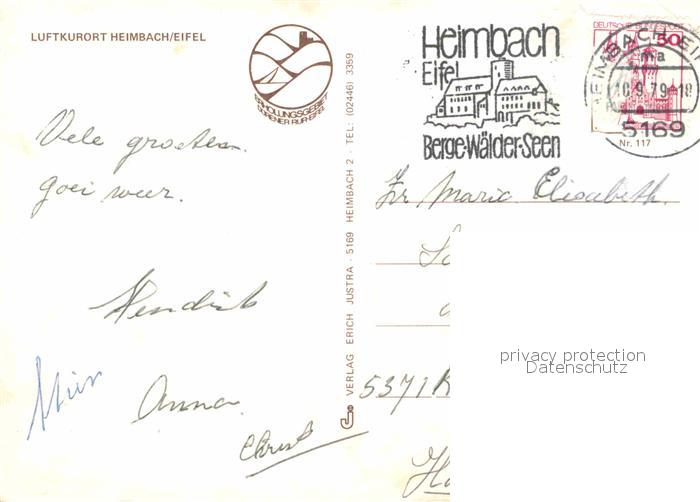 LUFTKURORT HEIMBACH/EIFEL
ERHOLUNGSGEBIET
DÜRENER RUR-EIFEL
Vele groeten.
Goei weer.
Hendrik
Anna
Christ
VERLAG ERICH JUSTRA · 5169 HEIMBACH 2 · TEL: (02446) 3359
Heimbach
Eifel
Berge·Wälder·Seen
DEUTSCHE BUNDESPOST
50
HEIMBACH, EIFEL
ma
10.9.79-18
5169
Nr. 117
Zr Maria Elisabeth
5371 K
privacy protection
Datenschutz